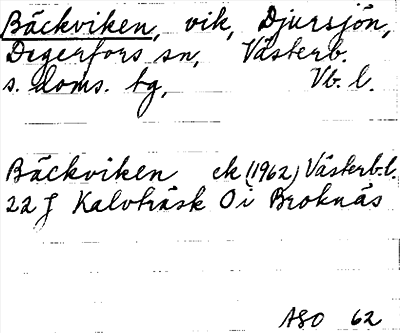 Bäckviken, vik, Djursjön,
Degerfors sn, Västerb.
s. doms. tg, Vb. l.
Bäckviken ek (1962) Västerb. l.
22 J Kalvträsk Öi Broknäs
ASO 62